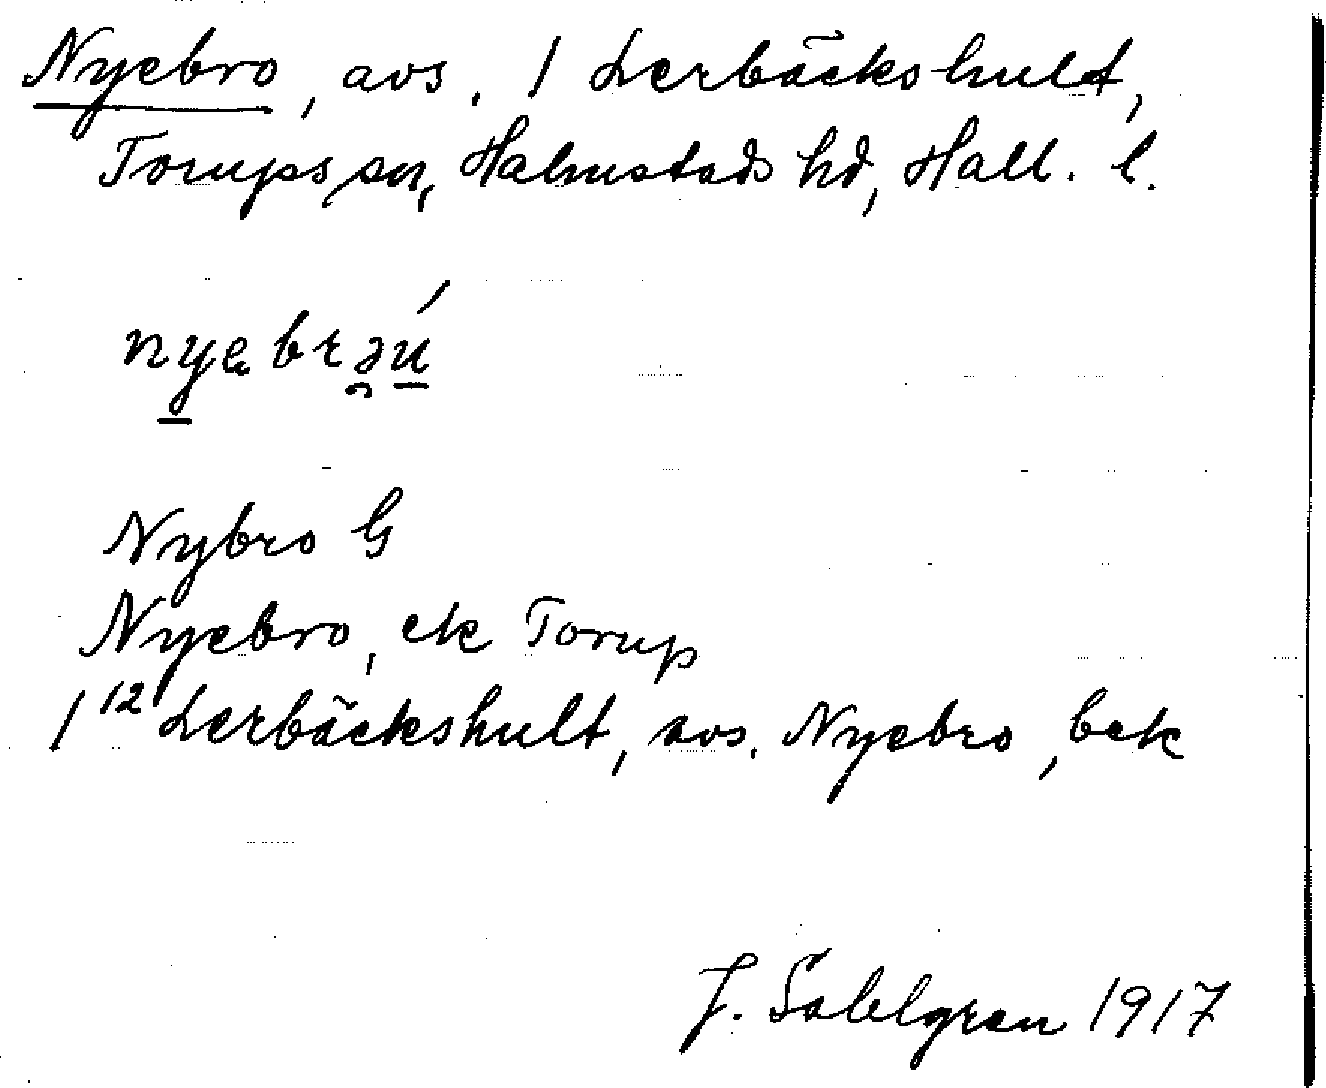 Nyebro, avs. / Lerbäckshult,
Torups sn, Halmstads hd, Hall. l.
nyebrəú̲
Nybro G
Nyebro, ek Torup
1 12 Lerbäckshult, avs. Nyebro, bek
J. Sahlgren 1917